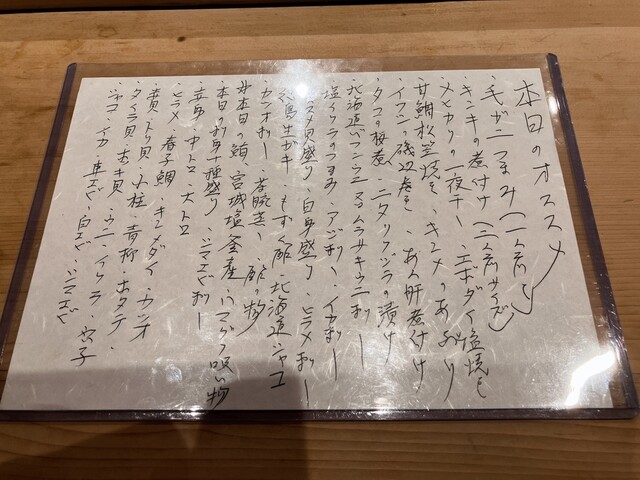 本日のオススメ
・毛ガニつまみ(二人前)
・キンキの煮付け(二人前サイズ)
・メヒカリの一夜干し・エボダイ塩焼き
・甘鯛松笠焼き・キンメのあぶり
・イワシの磯辺巻き・あん肝煮付け
・タコの桜煮・ニタリクジラの漬け
・北海道バフンウニ・ムラサキウニ刺し
・塩イクラのつまみ・アジ刺し・イカ刺し
・貝盛り・白身盛り・ヒラメ刺し
・生ガキ・もずく酢・北海道シャコ
・カツオ刺し・茶碗蒸し・酢の物
※本日の鮪、宮城塩釜産 ハマグリ吸い物
・本日の刺身十種盛り・シマエビ刺し
・赤身・中トロ・大トロ
・ヒラメ・春子鯛・キンメダイ・カツオ
・赤貝・トリ貝・小柱・青柳・ホタテ・
・タイラ貝・ホッキ貝・ウニ・イクラ・穴子
・シャコ・イカ・車エビ・白エビ・シマエビ